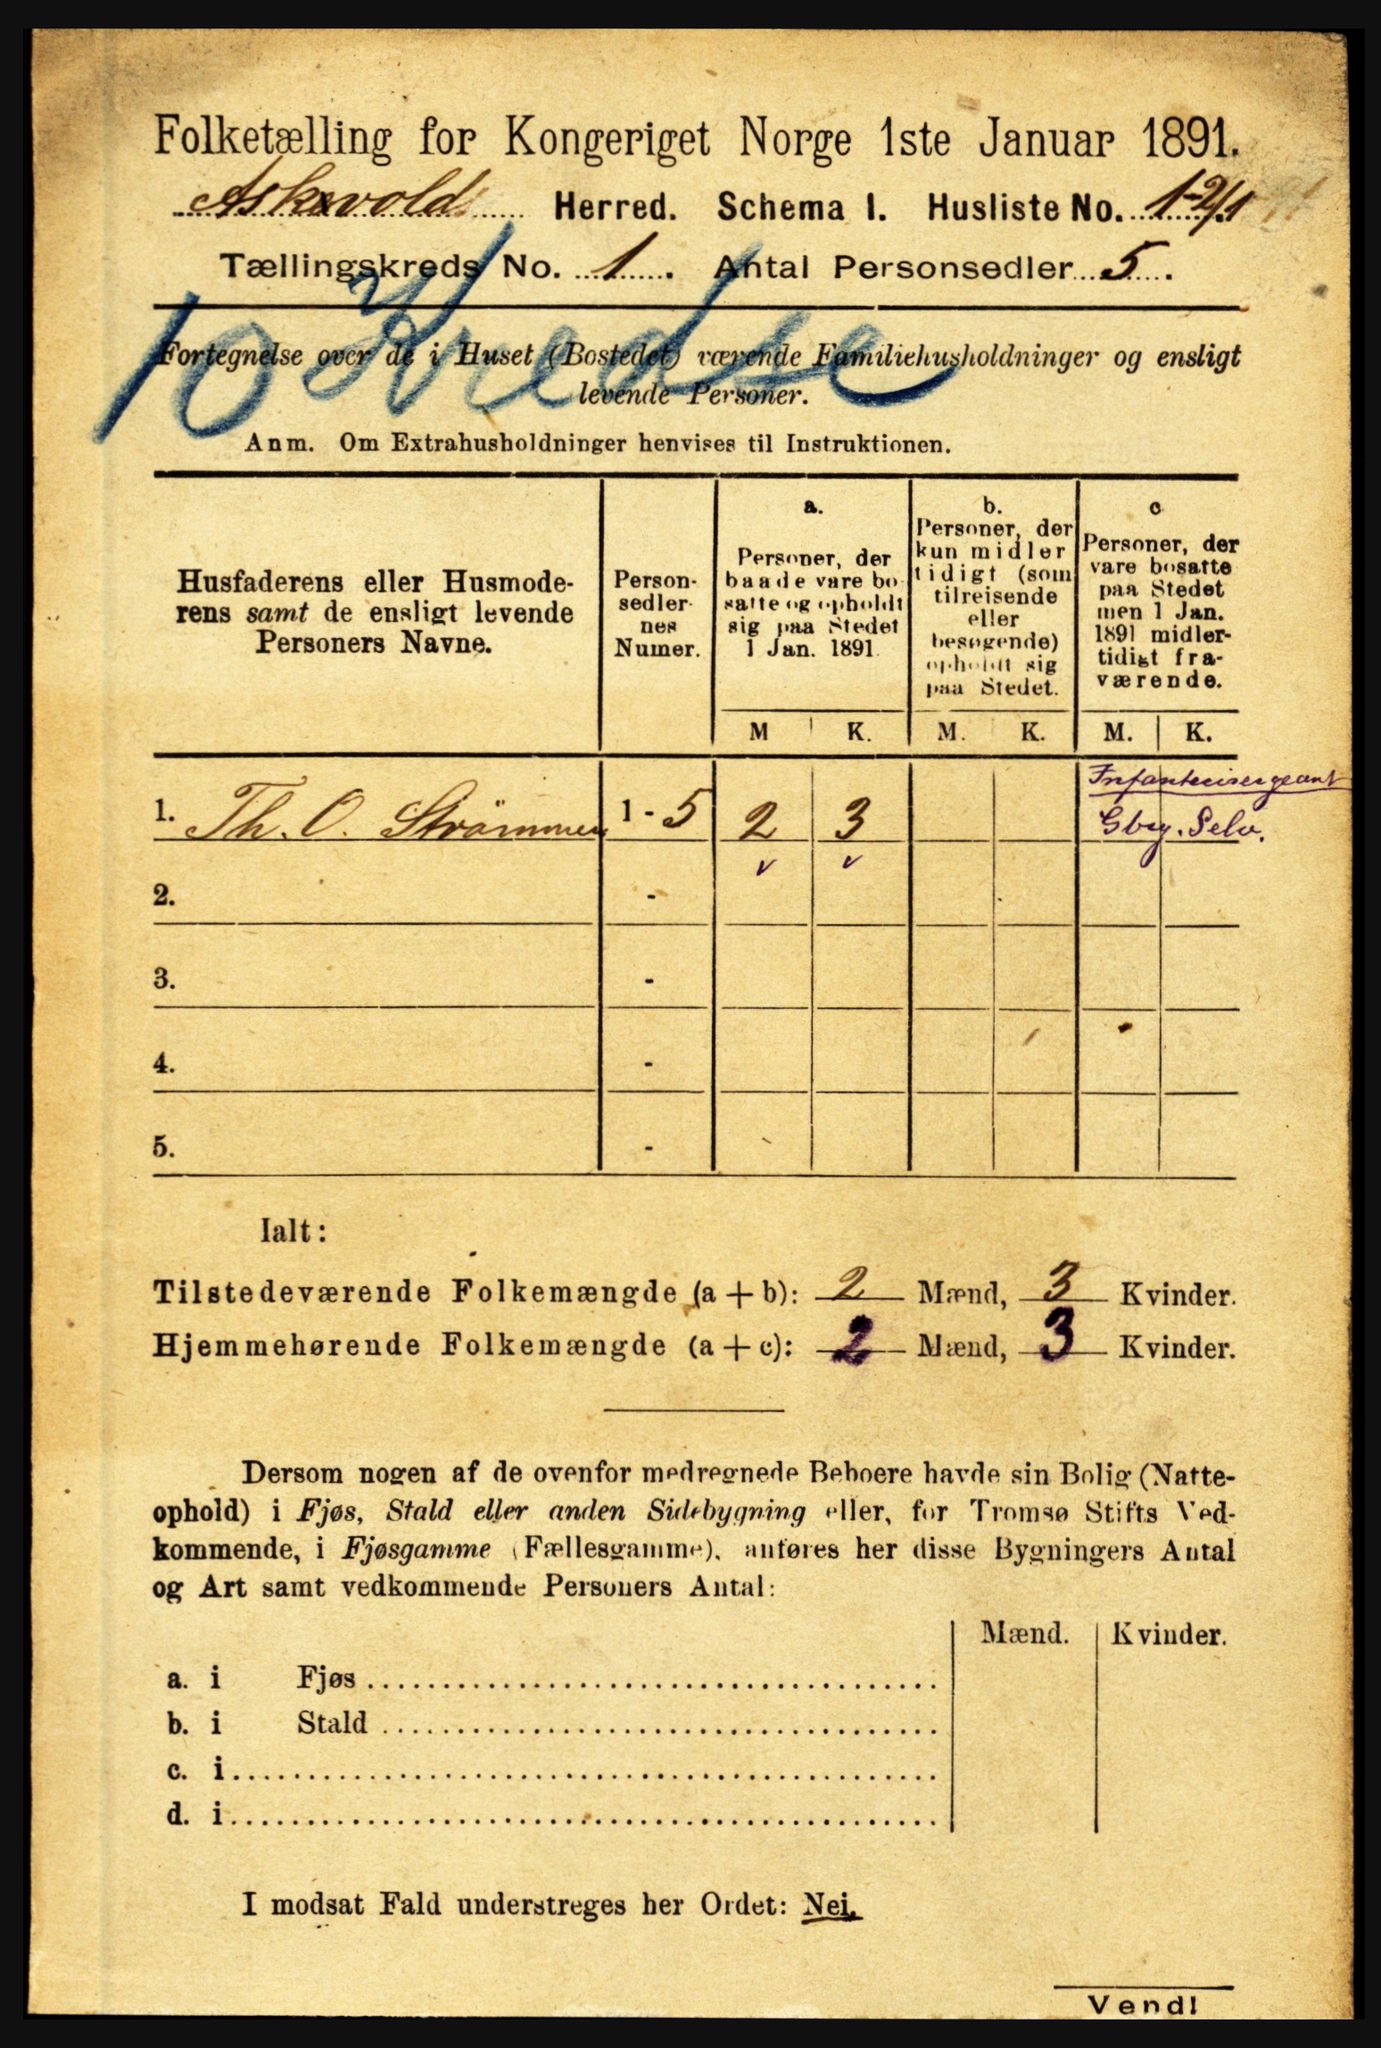 Folketælling for Kongeriget Norge 1ste Januar 1891.
Askvold Herred. Schema I. Husliste No. 1
Tællingskreds No. 1. Antal Personsedler 5.
10 Kredse
Fortegnelse over de i Huset (Bostedet) værende Familiehusholdninger og ensligt
levende Personer.
Anm. Om Extrahusholdninger henvises til Instruktionen.
Husfaderens eller Husmode-
rens samt de ensligt levende
Personers Navne.
Person-
sedler-
nes
Numer.
a.
Personer, der
baade vare bo-
satte og opholdt
sig paa Stedet
1 Jan. 1891.
M K.
b.
Personer, der
kun midler
tidigt (som
tilreisende
eller
besøgende)
opholdt sig
paa Stedet.
M. K.
c
Personer, der
vare bosatte
paa Stedet
men 1 Jan.
1891 midler-
tidigt fra-
værende.
M. K.
Infanterisergeant
1. Th. O. Strömmen 1 - 5 2 3 Gbrg. Selv.
2. -
3. -
4. -
5. -
Ialt:
Tilstedeværende Folkemængde (a + b): 2 Mænd, 3 Kvinder.
Hjemmehørende Folkemængde (a + c): 2 Mænd, 3 Kvinder.
Dersom nogen af de ovenfor medregnede Beboere havde sin Bolig (Natte-
ophold) i Fjøs, Stald eller anden Sidebygning eller, for Tromsø Stifts Ved-
kommende, i Fjøsgamme (Fællesgamme), anføres her disse Bygningers Antal
og Art samt vedkommende Personers Antal:
Mænd. Kvinder.
a. i Fjøs
b. i Stald
c. i
d. i
I modsat Fald understreges her Ordet: Nei.
Vend!